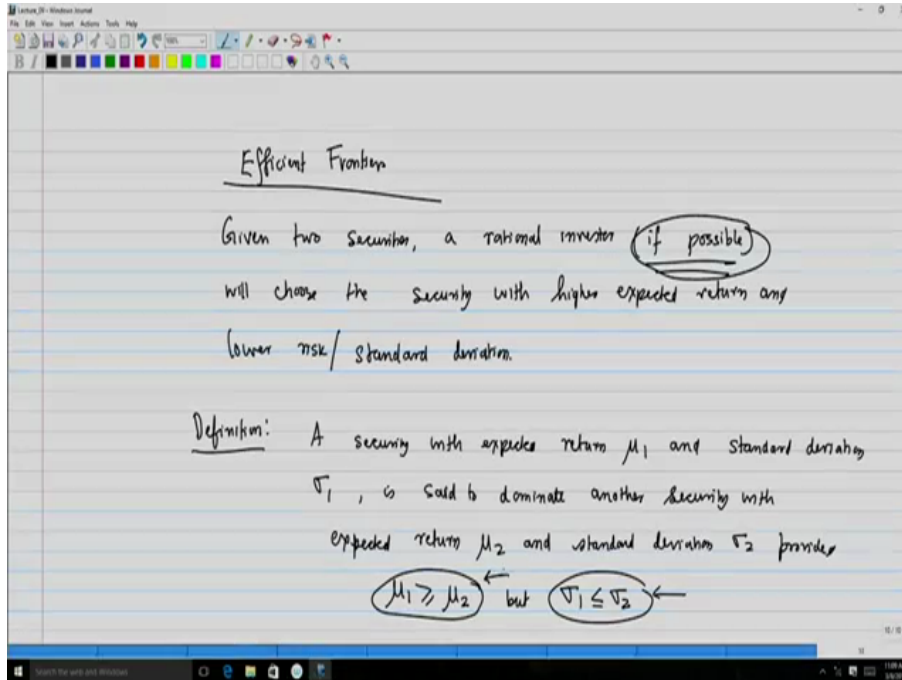 Lecture_09 - Windows Journal
File Edit View Insert Actions Tools Help
B I
Efficient Frontier
Given two securities, a rational investor (if possible)
will choose the security with higher expected return and
lower risk/ standard deviation.
Definition: A security with expected return μ₁ and standard deviation
σ₁, is said to dominate another security with
expected return μ₂ and standard deviation σ₂ provided
μ₁ ≥ μ₂ ← but σ₁ ≤ σ₂ ←
10 / 10
10
Search the web and Windows